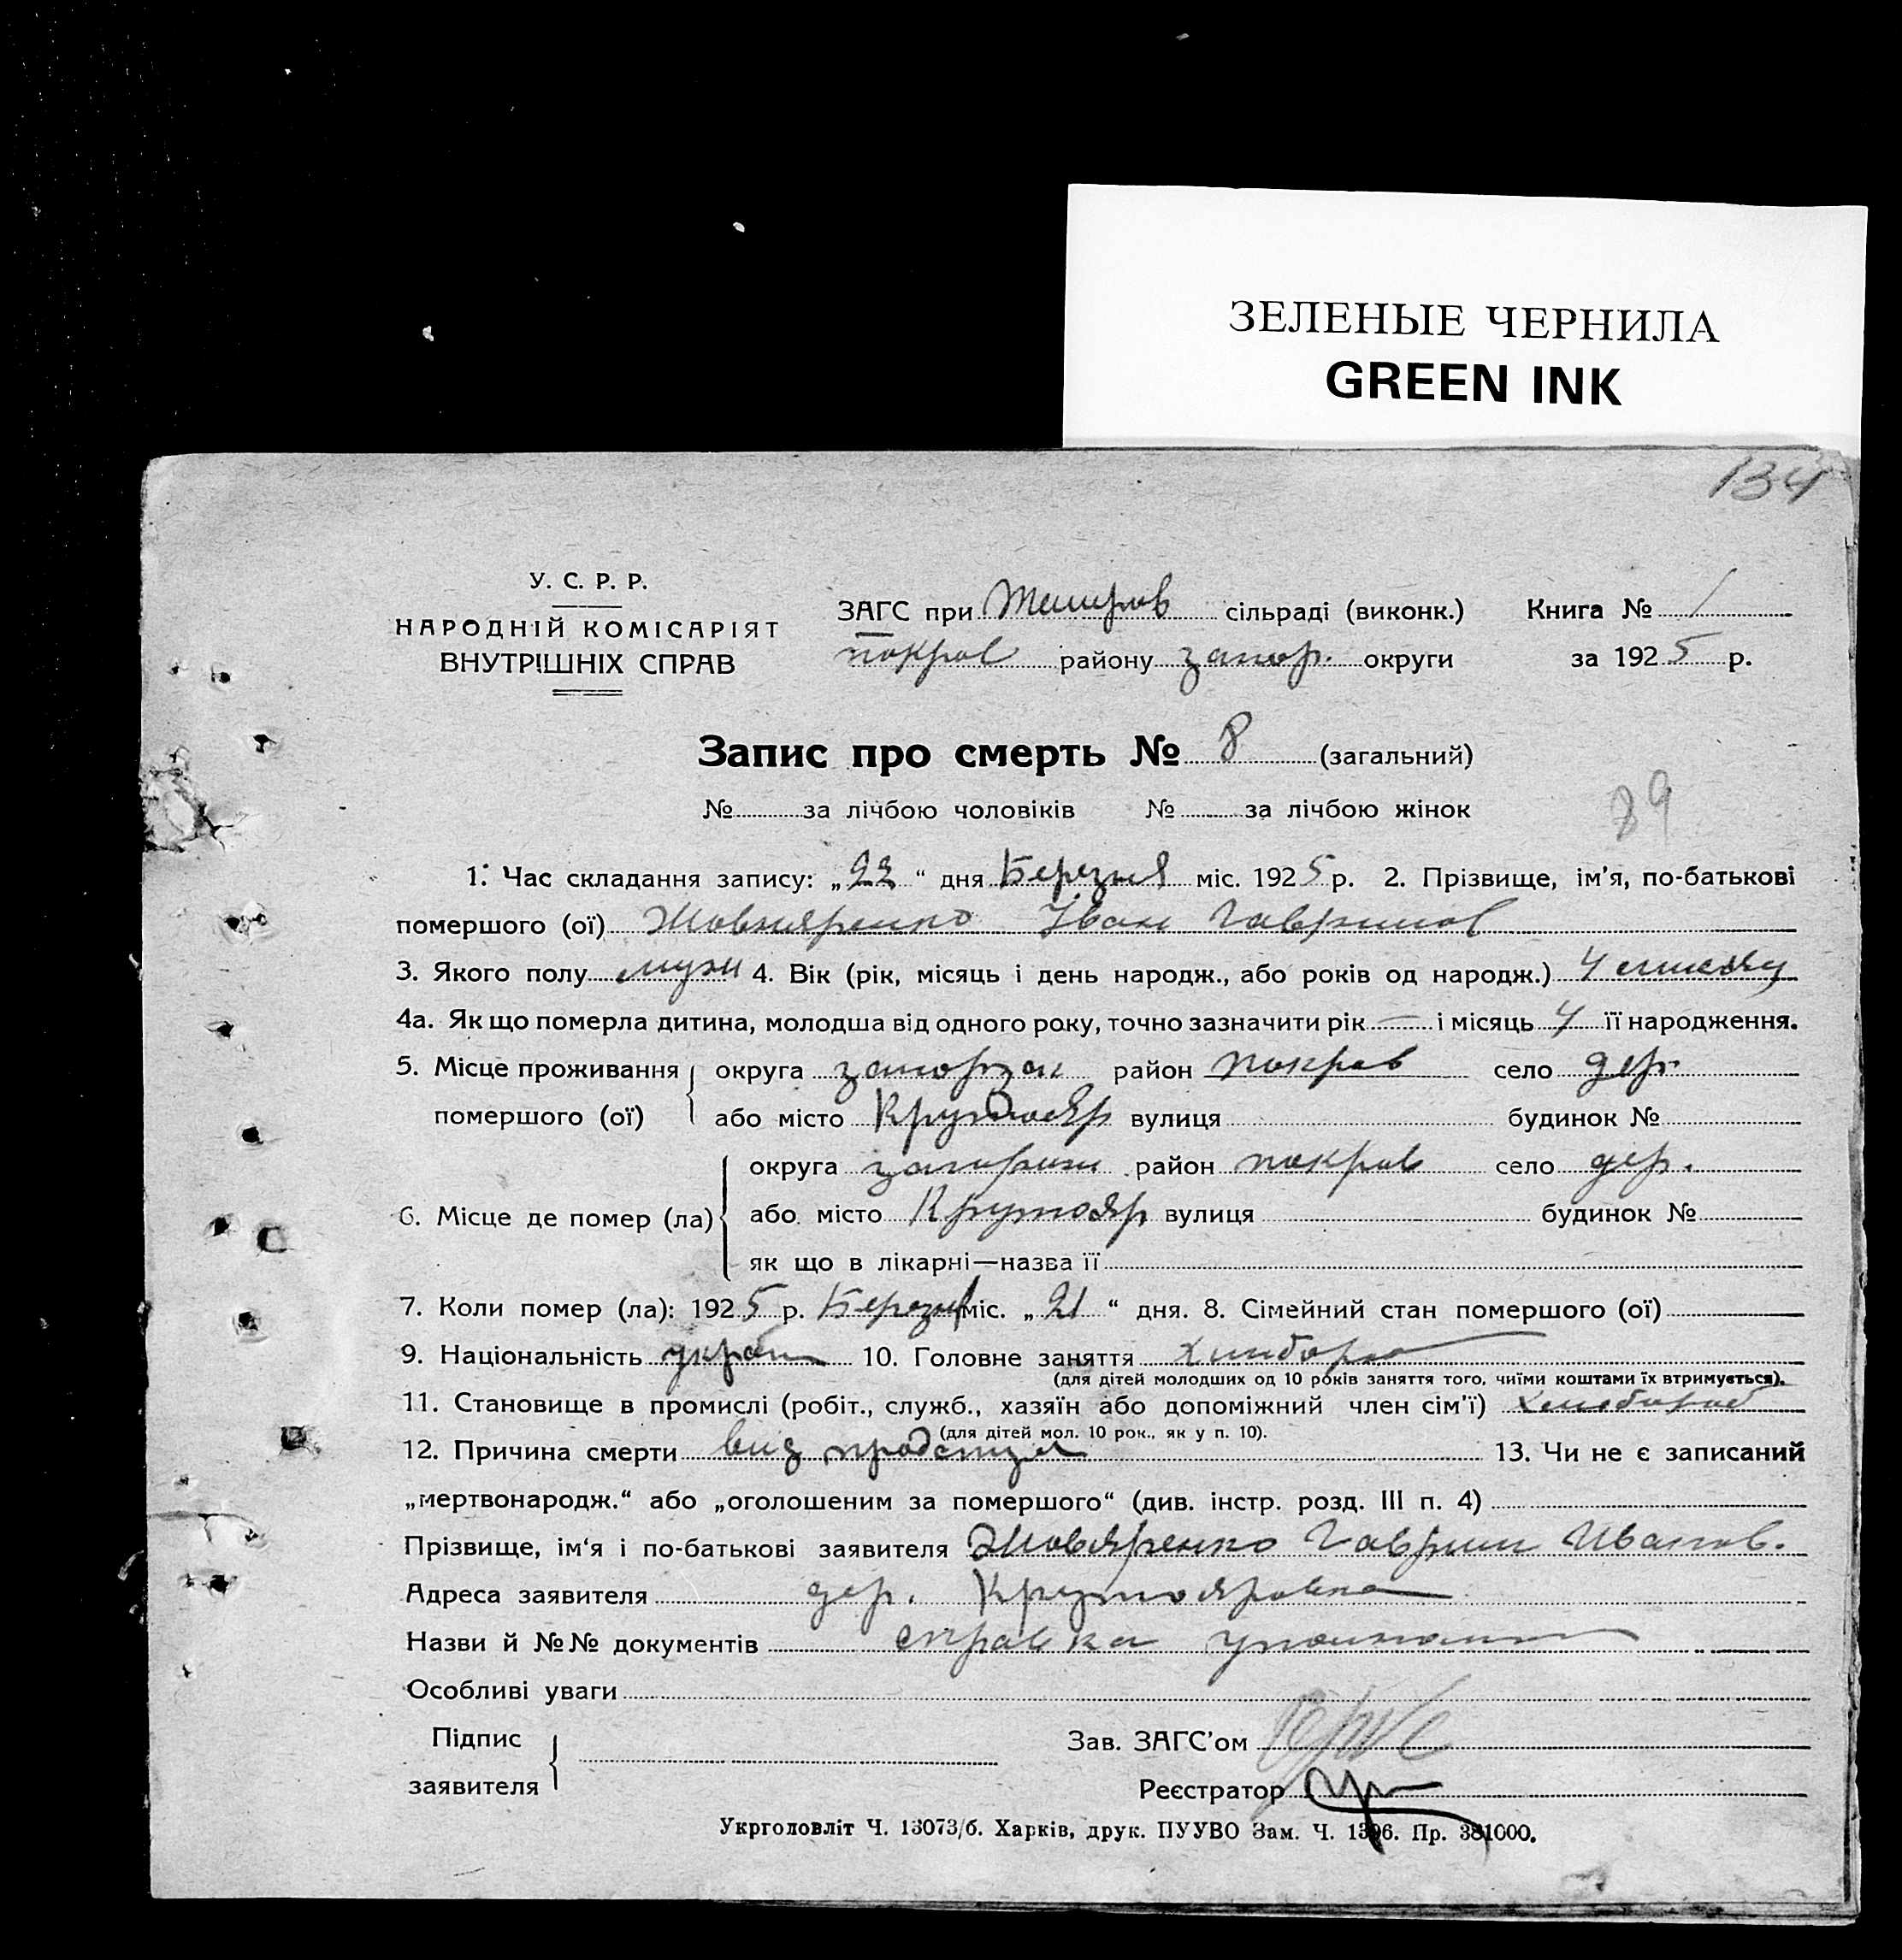 ЗЕЛЕНЫЕ ЧЕРНИЛА
GREEN INK
134
У. С. Р. Р.
НАРОДНІЙ КОМІСАРІЯТ
ВНУТРІШНІХ СПРАВ
ЗАГС при сільраді (виконк.) Книга № 1
покров району запор. округи за 1925 р.
Запис про смерть № 8 (загальний)
№ за лічбою чоловіків № за лічбою жінок
89
1. Час складання запису: „22“ дня Березня міс. 1925 р. 2. Прізвище, ім'я, по-батькові
помершого (ої) Жовняренко Іван Гаврилов
3. Якого полу мужч 4. Вік (рік, місяць і день народж., або років од народж.) 4
4а. Як що померла дитина, молодша від одного року, точно зазначити рік — і місяць 4 її народження.
5. Місце проживання округа район покров село дер.
помершого (ої) або місто Крутояр вулиця будинок №
округа район покров село дер.
6. Місце де помер (ла) або місто Крутояр вулиця будинок №
як що в лікарні—назва її
7. Коли помер (ла): 1925 р. Березня міс. „21“ дня. 8. Сімейний стан помершого (ої)
9. Національність 10. Головне заняття
(для дітей молодших од 10 років заняття того, чиїми коштами їх втримується).
11. Становище в промислі (робіт., служб., хазяїн або допоміжний член сім'ї)
(для дітей мол. 10 рок., як у п. 10).
12. Причина смерти вид 13. Чи не є записаний
„мертвонародж.“ або „оголошеним за помершого“ (див. інстр. розд. III п. 4)
Прізвище, ім'я і по-батькові заявителя Жовняренко Гаврил Иванов.
Адреса заявителя дер. Крутояровка
Назви й №№ документів справка
Особливі уваги
Підпис
заявителя
Зав. ЗАГС'ом
Реєстратор
Укрголовліт Ч. 13073/б. Харків, друк. ПУУВО Зам. Ч. 1396. Пр. 381000.